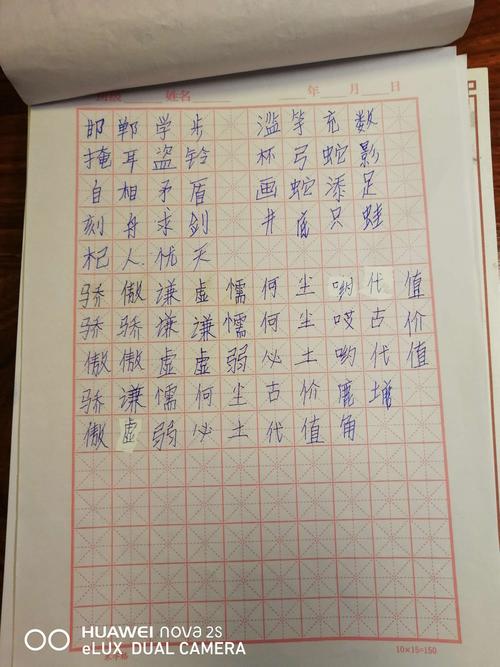 姓名 年 月 日
邯郸学步 滥竽充数
掩耳盗铃 杯弓蛇影
自相矛盾 画蛇添足
刻舟求剑 井底只蛙
杞人忧天
骄傲谦虚懦何尘哟代值
骄骄谦谦懦何尘哎古价
傲傲虚虚弱必土哟代值
骄谦懦何尘古价鹿
傲虚弱必土代值角
HUAWEI nova 2s
eLUX DUAL CAMERA
10×15=150